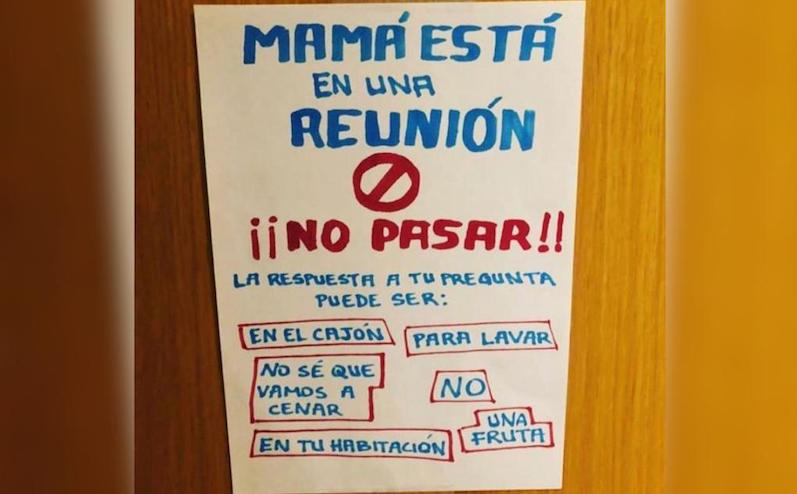 MAMÁ ESTÁ
EN UNA
REUNIÓN
¡¡NO PASAR!!
LA RESPUESTA A TU PREGUNTA
PUEDE SER:
EN EL CAJÓN
PARA LAVAR
NO SÉ QUE
VAMOS A
CENAR
NO
EN TU HABITACIÓN
UNA
FRUTA